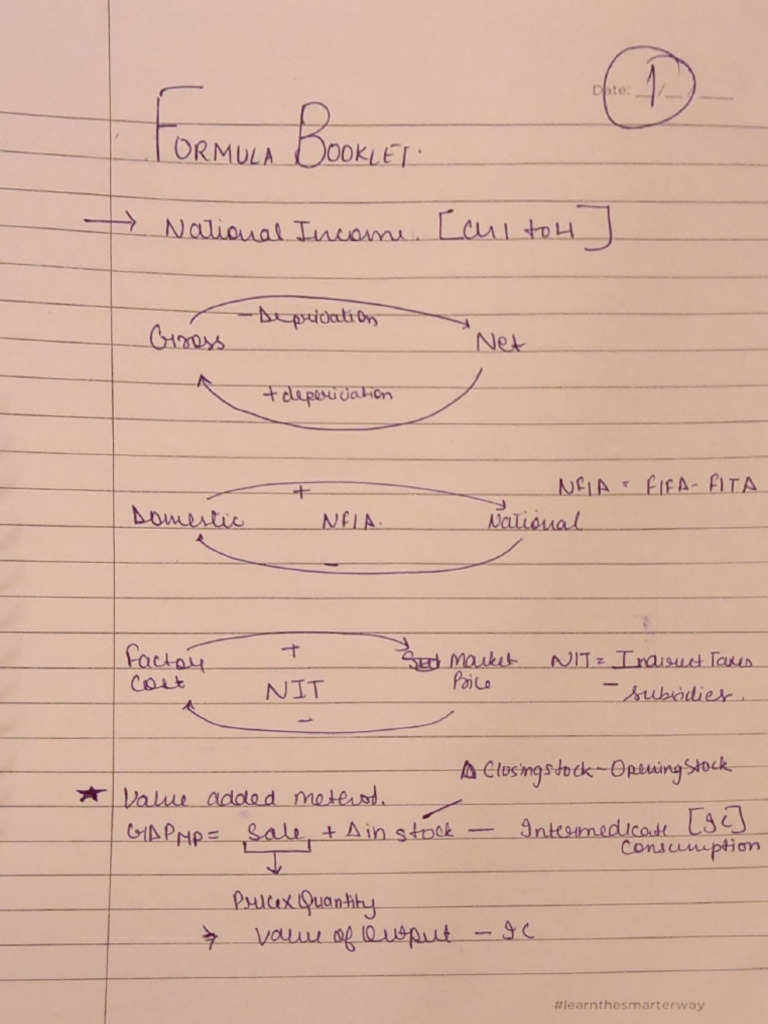 Date: 1/__/__
FORMULA BOOKLET.
→ National Income. [CH1 to 4]
- Depriciation
Gross Net
+ depericiation
+ NFIA = FIFA - FITA
Domestic NFIA. National
-
+
Factory Market NIT = Indirect Taxes
Cost NIT Price - subsidies.
-
Δ Closing stock - Opening Stock
★ Value added method.
GDPMP = Sale + Δ in stock - Intermedicate [IC]
Consumption
↓
Price x Quantity
⇒ Value of Output - IC
#learnthesmarterway